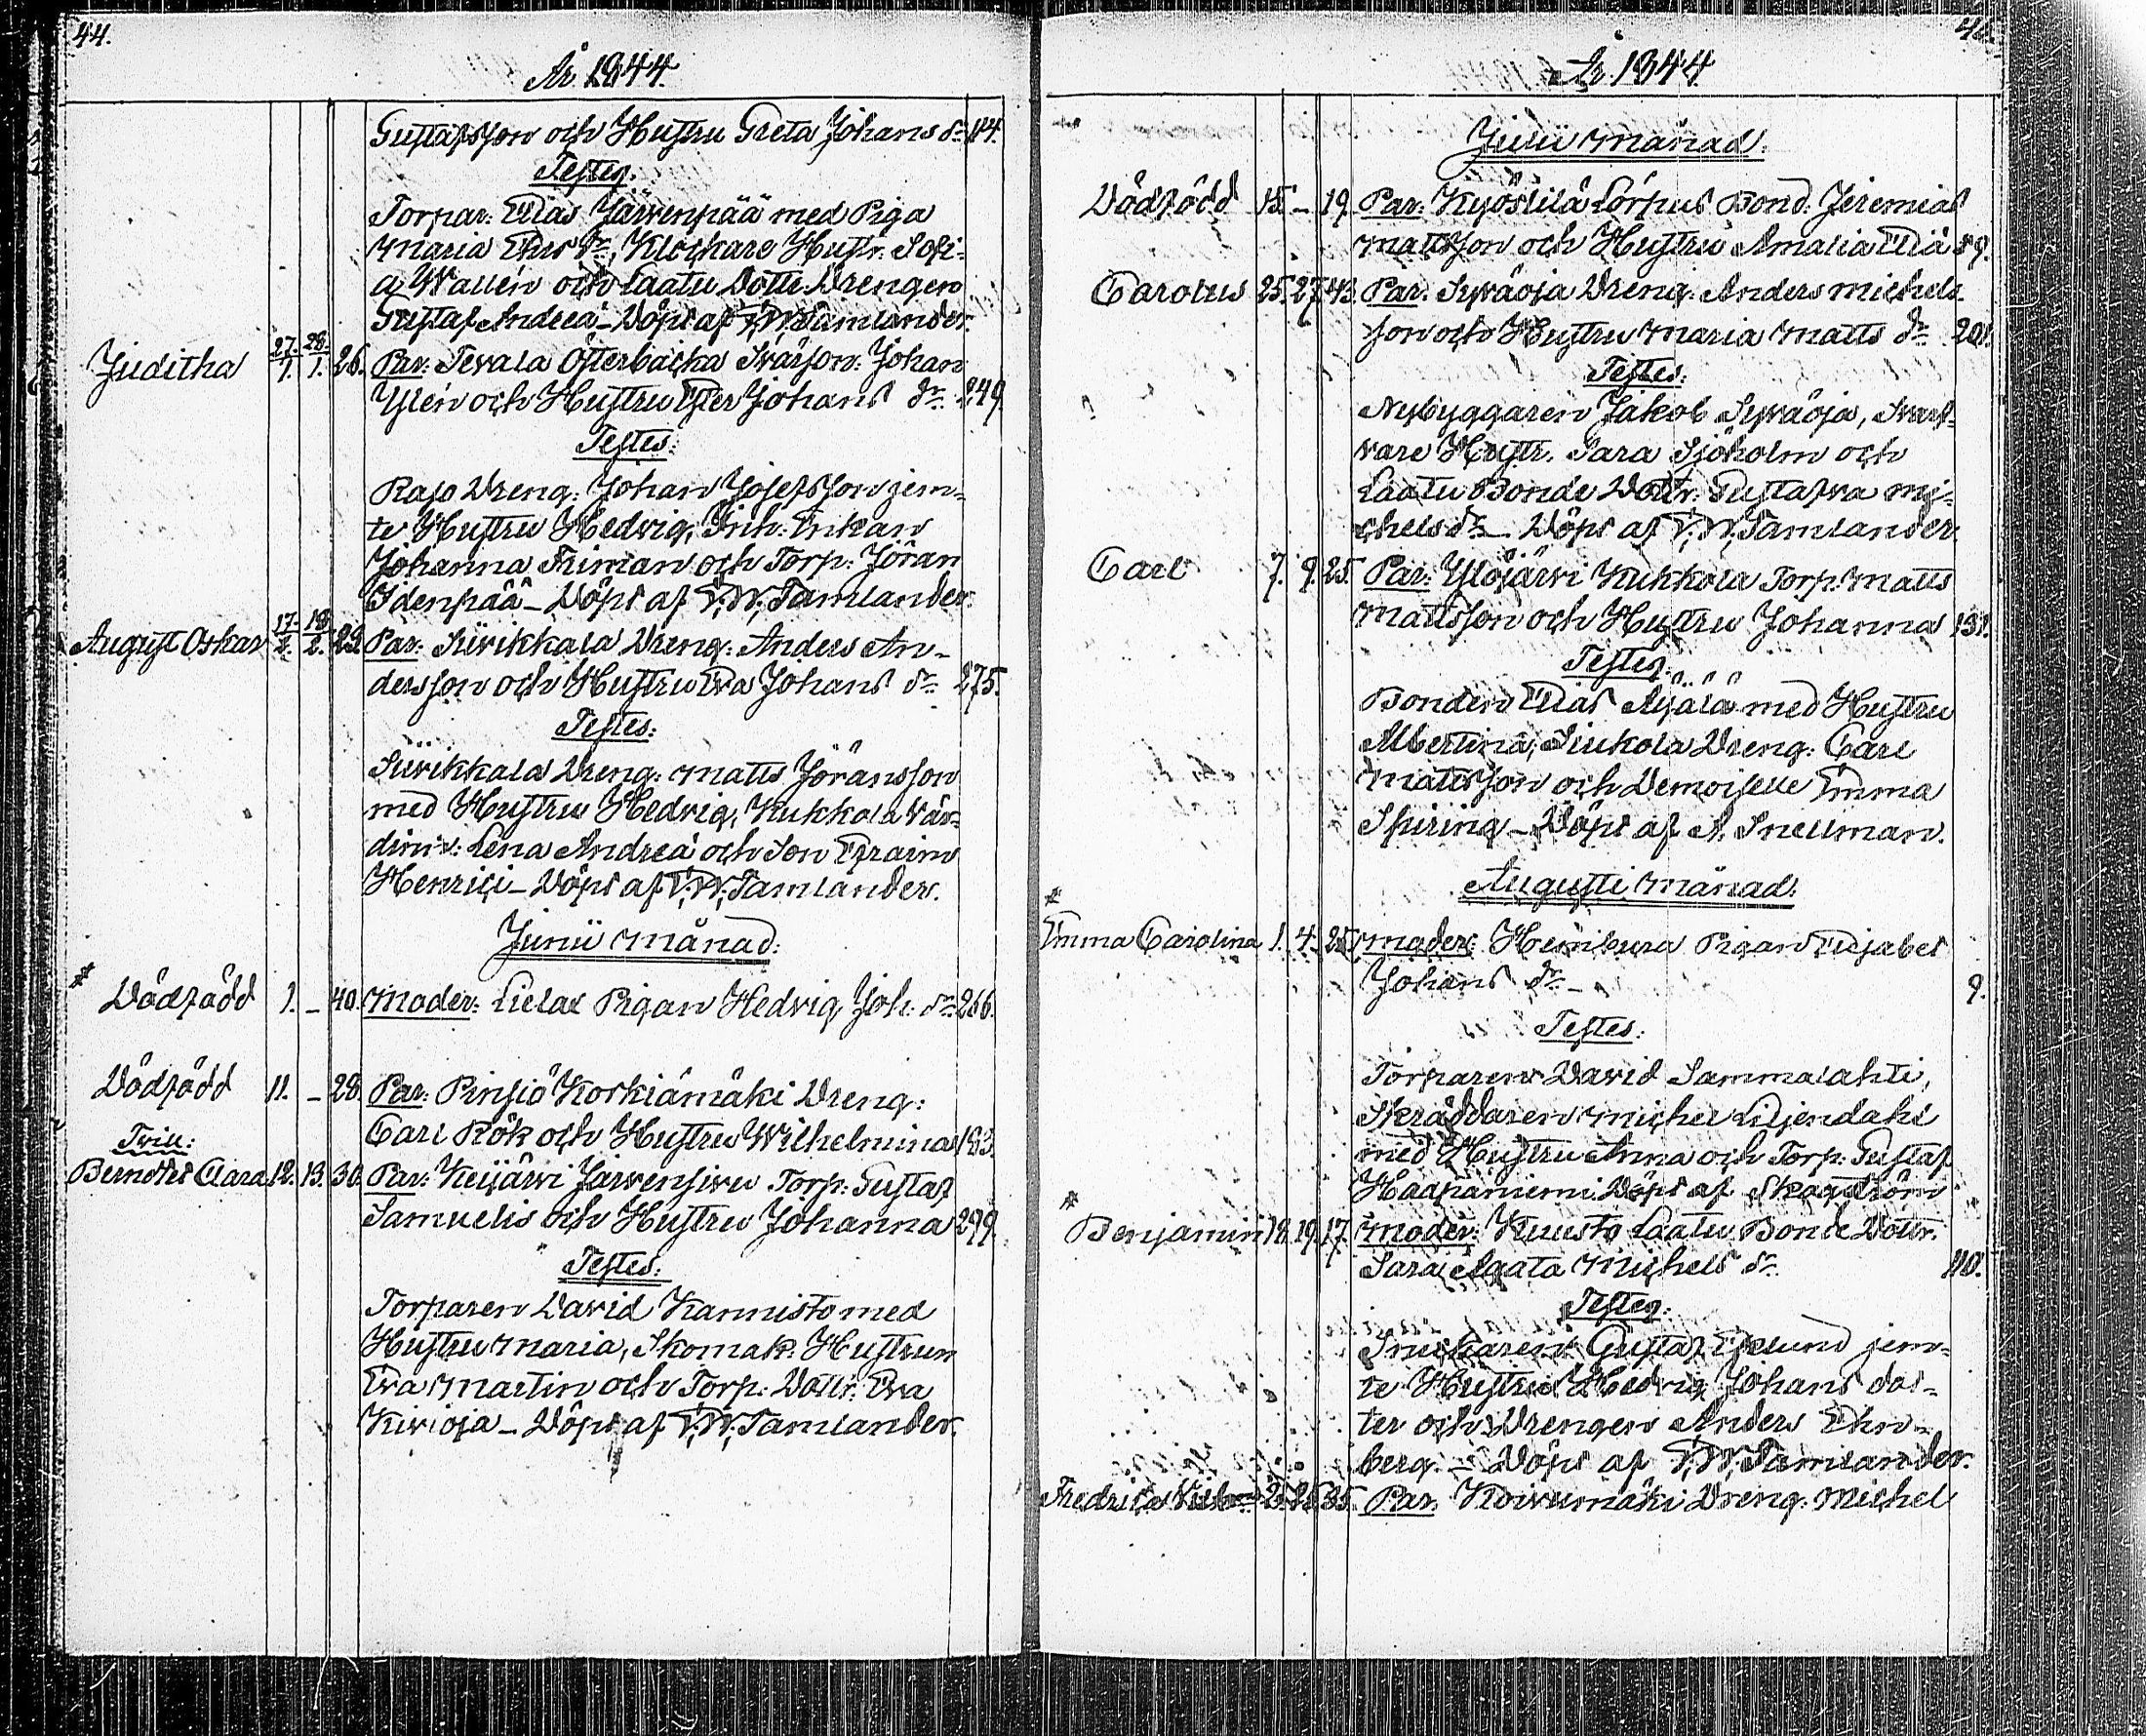 44.
År 1844.
Gustafsson och Hustru Greta Johans dr 114.
Testes:
Torpar: Elias Järvenpää med Piga
Maria Ehrs dr, Klockare Hustr. Sofi-
a Wallén och Laatu Dotte Drengen
Gustaf Andreä – Döpt af F.W. Tamlander.
Juditha 27/1. 28/1. 26. Par: Tevala Österbacka Svärson: Johan
Ylén och Hustru Ester Johans dr 249.
Testes:
Rajo Dreng: Johan Josefsson jem-
te Hustru Hedvig, Inh: Enkan
Johanna Friman och Torp: Jöran
Idenpää – Döpt af F.W. Tamlander.
August Oskar 17/2. 18/2. 29. Par: Siivikkala Dreng: Anders An-
dersson och Hustru Eva Johans dr 275.
Testes:
Siivikkala Dreng: Matts Jöransson
med Hustru Hedvig, Kukkola Vär-
dinn: Lena Andreä och Son Efraim
Henrici – Döpt af F.W. Tamlander.
Junii Månad:
# Dödfödd 1. – 40. Moder: Lielax Pigan Hedvig Joh. dr 266.
Dödfödd 11. – 28. Par: Pinsiö Korkiamäki Dreng:
Carl Rök och Hustru Wilhelmina 183.
Tvill:
Berndt & Clara 12. 13. 30. Par: Keijärvi Järvensivu Torp: Gustaf
Samuelis och Hustru Johanna 299.
Testes:
Torparen David Kannisto med
Hustru Maria, Skomak: Hustrun
Eva Martin och Torp: Dottr. Eva
Kivioja – Döpt af F.W. Tamlander.
År 1844
Julii Månad:
Dödfödd 15. – 19. Par: Kyöstilä Lörpus Bond. Jeremias
Mattsson och Hustru Amalia Eliä 89.
Carolus 25. 27. 43. Par: Sywäoja Dreng: Anders Michels-
son och Hustru Maria Matts dr 201.
Testes:
Nybyggaren Jakob Sywäoja, Svarf-
vare Hustr. Sara Sjöholm och
Laatu Bonde Dottr. Gustafva Mi-
chels dr – Döpt af F.W. Tamlander.
Carl 7. 9. 25. Par: Ylöjärvi Kukkola Torp: Matts
Mattsson och Hustru Johanna 131.
Testes:
Bonden Elias Äijälä med Hustru
Albertina, Siukola Dreng: Carl
Mattsson och Demoiselle Emma
Spiring – Döpt af A. Snellman.
Augusti Månad:
#
Emma Carolina 1. 4. 25. Moder: Pigan Elisabet
Johans dr – 9.
Testes:
Torparen David Sammalahti,
Skräddaren Michel Liljendahl
med Hustru Anna och Torp: Gustaf
Haapaniemi Döpt af Skogström
#
Benjamin 18. 19. 17. Moder: Kuusto Laatu Bonde Dottr.
Sara Agata Michels dr 110.
Testes:
Snickaren Gustaf Eklund jem-
te Hustru Hedvig Johans dot-
ter och Drengen Anders Ehn-
berg – Döpt af F.W. Tamlander.
Fredrica 25. 35. Par: Koivumäki Dreng: Michel